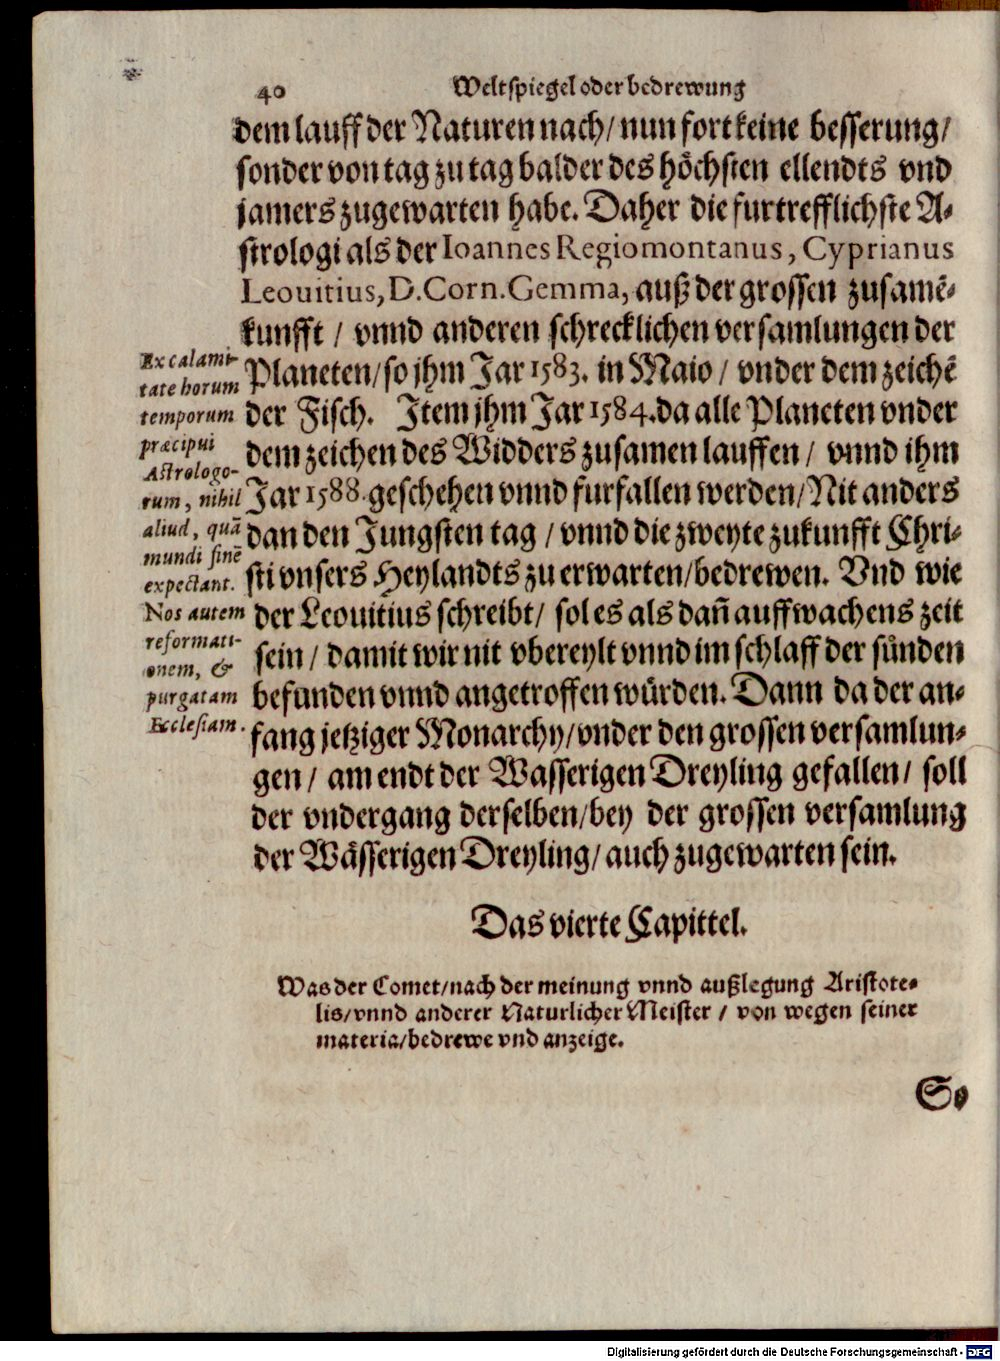 40 Weltspiegel oder bedrewung
dem lauff der Naturen nach/ nun fort keine besserung/
sonder von tag zu tag balder des höchsten ellendts vnd
jamers zugewarten habe. Daher die furtrefflichste A-
strologi als der Ioannes Regiomontanus, Cyprianus
Leouitius, D. Corn. Gemma, auß der grossen zusamē-
kunfft / vnnd anderen schrecklichen versamlungen der
Planeten/ so jhm Jar 1583. in Maio / vnder dem zeichē
der Fisch. Item jhm Jar 1584. da alle Planeten vnder
dem zeichen des Widders zusamen lauffen / vnnd ihm
Jar 1588. geschehen vnnd furfallen werden/ Nit anders
dan den Jungsten tag / vnnd die zweyte zukunfft Chri-
sti vnsers Heylandts zu erwarten/ bedrewen. Vnd wie
der Leouitius schreibt/ sol es als dañ auffwachens zeit
sein / damit wir nit vbereylt vnnd im schlaff der sünden
befunden vnnd angetroffen würden. Dann da der an-
fang jetziger Monarchy/ vnder den grossen versamlun-
gen / am endt der Wasserigen Dreyling gefallen/ soll
der vndergang derselben/ bey der grossen versamlung
der Wässerigen Dreyling/ auch zugewarten sein.
Ex calami-
tate horum
temporum
præcipui
Astrologo-
rum, nihil
aliud, quā
mundi finē
expectant.
Nos autem
reformati-
onem, &
purgatam
Ecclesiam.
Das vierte Capittel.
Was der Comet/ nach der meinung vnnd außlegung Aristote-
lis/ vnnd anderer Naturlicher Meister / von wegen seiner
materia/ bedrewe vnd anzeige.
So
Digitalisierung gefördert durch die Deutsche Forschungsgemeinschaft - DFG